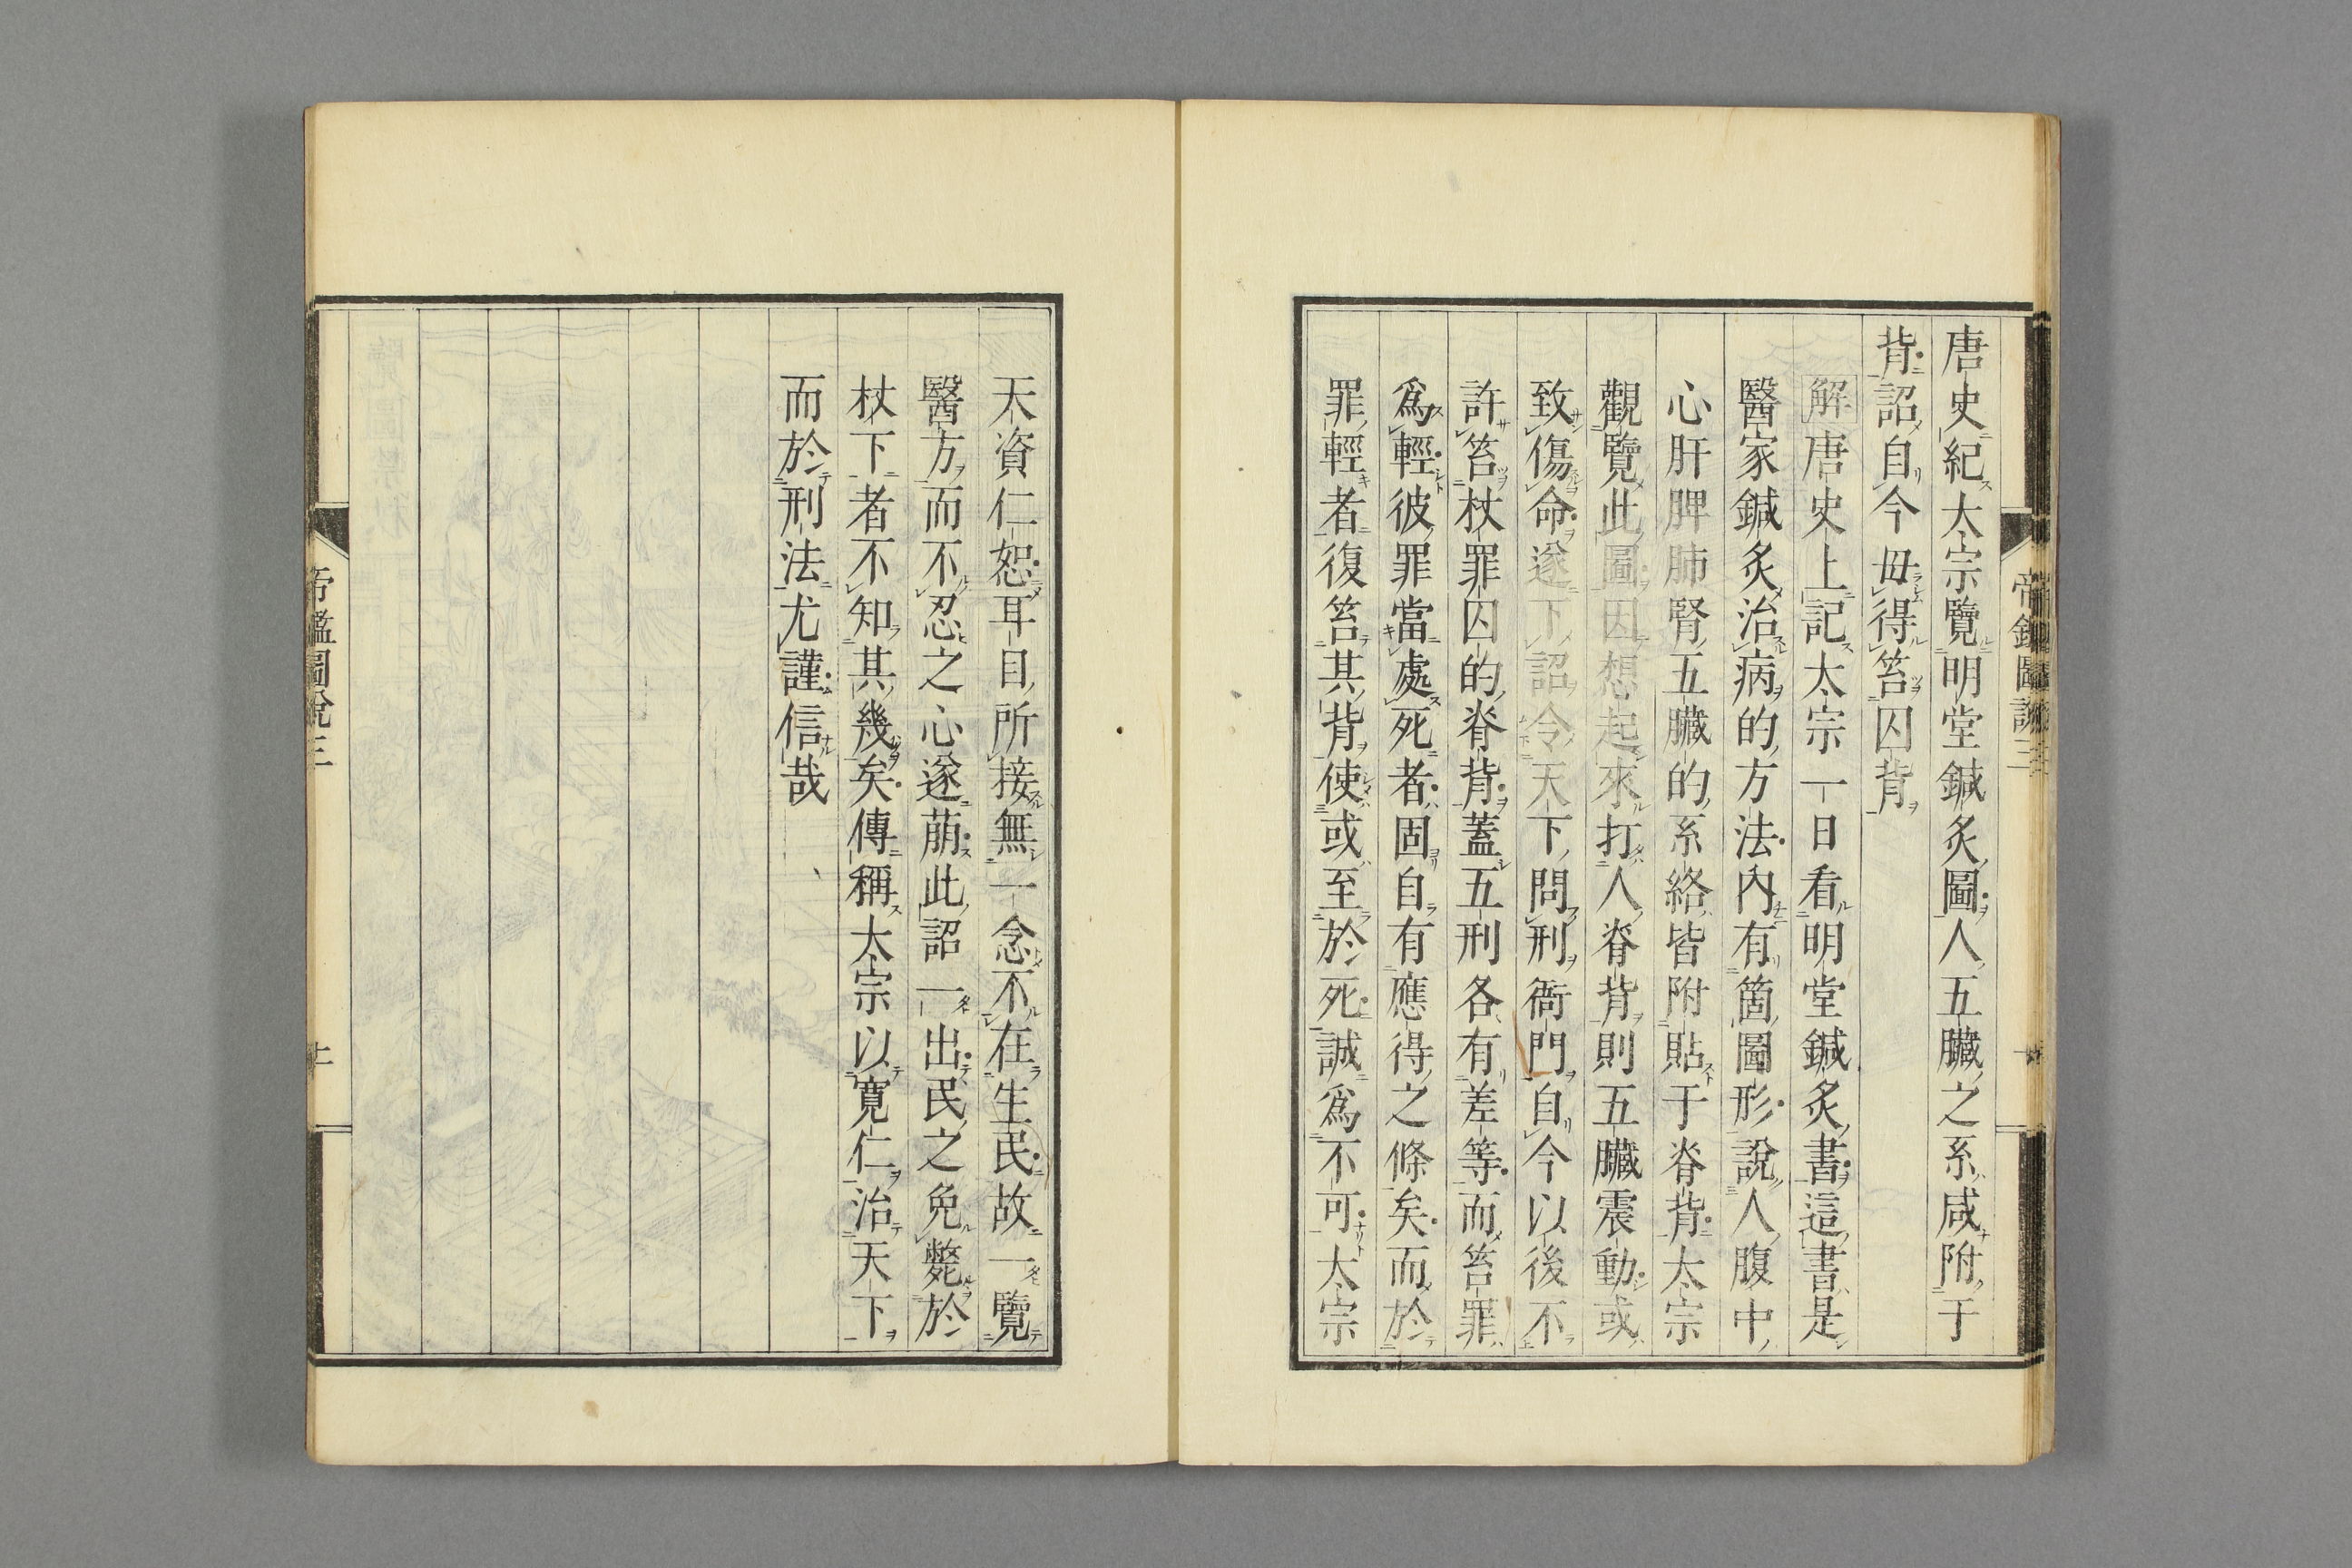 唐史紀太宗覽明堂鍼炙圖人五臟之系咸附于
背詔自今毋得笞囚背
解唐史上記太宗一日看明堂鍼炙書這書是
醫家鍼炙治病的方法內有箇圖形說人腹中
心肝脾肺腎五臟的系絡皆附貼于脊背太宗
觀覽此圖因想起來打人脊背則五臟震動或
致傷命遂下詔令天下問刑衙門自今以後不
許笞杖罪囚的脊背蓋五刑各有差等而笞罪
爲輕彼罪當處死者固自有應得之條矣而於
罪輕者復笞其背使或至於死誠爲不可太宗
天資仁恕耳目所接無一念不在生民故一覽
醫方而不忍之心遂萠此詔一出民之免斃於
杖下者不知其幾矣傳稱太宗以寬仁治天下
而於刑法尤謹信哉
帝鑑圖說三